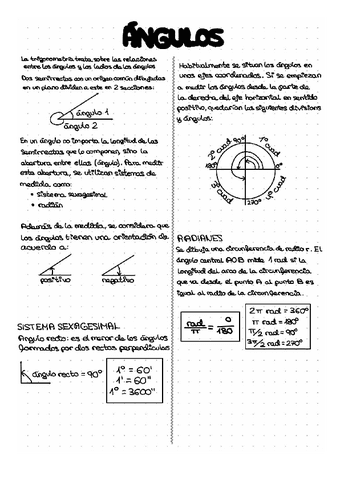 ÁNGULOS
La trigonometría trata sobre las relaciones
entre los ángulos y los lados de los ángulos
Dos semirrectas con un origen común dibujadas
en un plano dividen a este en 2 secciones:
ángulo 1
ángulo 2
En un ángulo no importa la longitud de las
semirrectas que lo componen, sino la
abertura entre ellas (ángulo). Para medir
esta abertura, se utilizan sistemas de
medida como:
• sistema sexagesimal
• radián
Además de la medida, se considera que
los ángulos tienen una orientación de
acuerdo a:
positivo
negativo
SISTEMA SEXAGESIMAL
Ángulo recto: es el menor de los ángulos
formados por dos rectas perpendiculares
ángulo recto = 90°
1° = 60'
1' = 60"
1° = 3600"
Habitualmente se sitúan los ángulos en
unos ejes coordenados. Si se empiezan
a medir los ángulos desde la parte de
la derecha del eje horizontal en sentido
positivo, quedarían las siguientes divisiones
y ángulos:
2° cuad
90°
1° cuad
180°
0°
3° cuad
270°
4° cuad
RADIANES
Se dibuja una circunferencia de radio r. El
ángulo central AOB mide 1 rad si la
longitud del arco de la circunferencia
que va desde el punto A al punto B es
igual al radio de la circunferencia.
rad / π = ° / 180
2π rad = 360°
π rad = 180°
π/2 rad = 90°
3π/2 rad = 270°